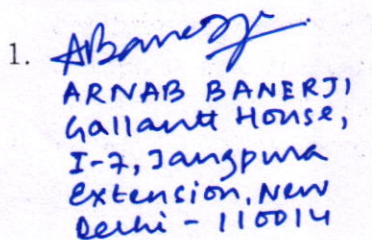 1. ABanerji
ARNAB BANERJI
Gallantt House,
I-7, Jangpura
Extension, New
Delhi - 110014